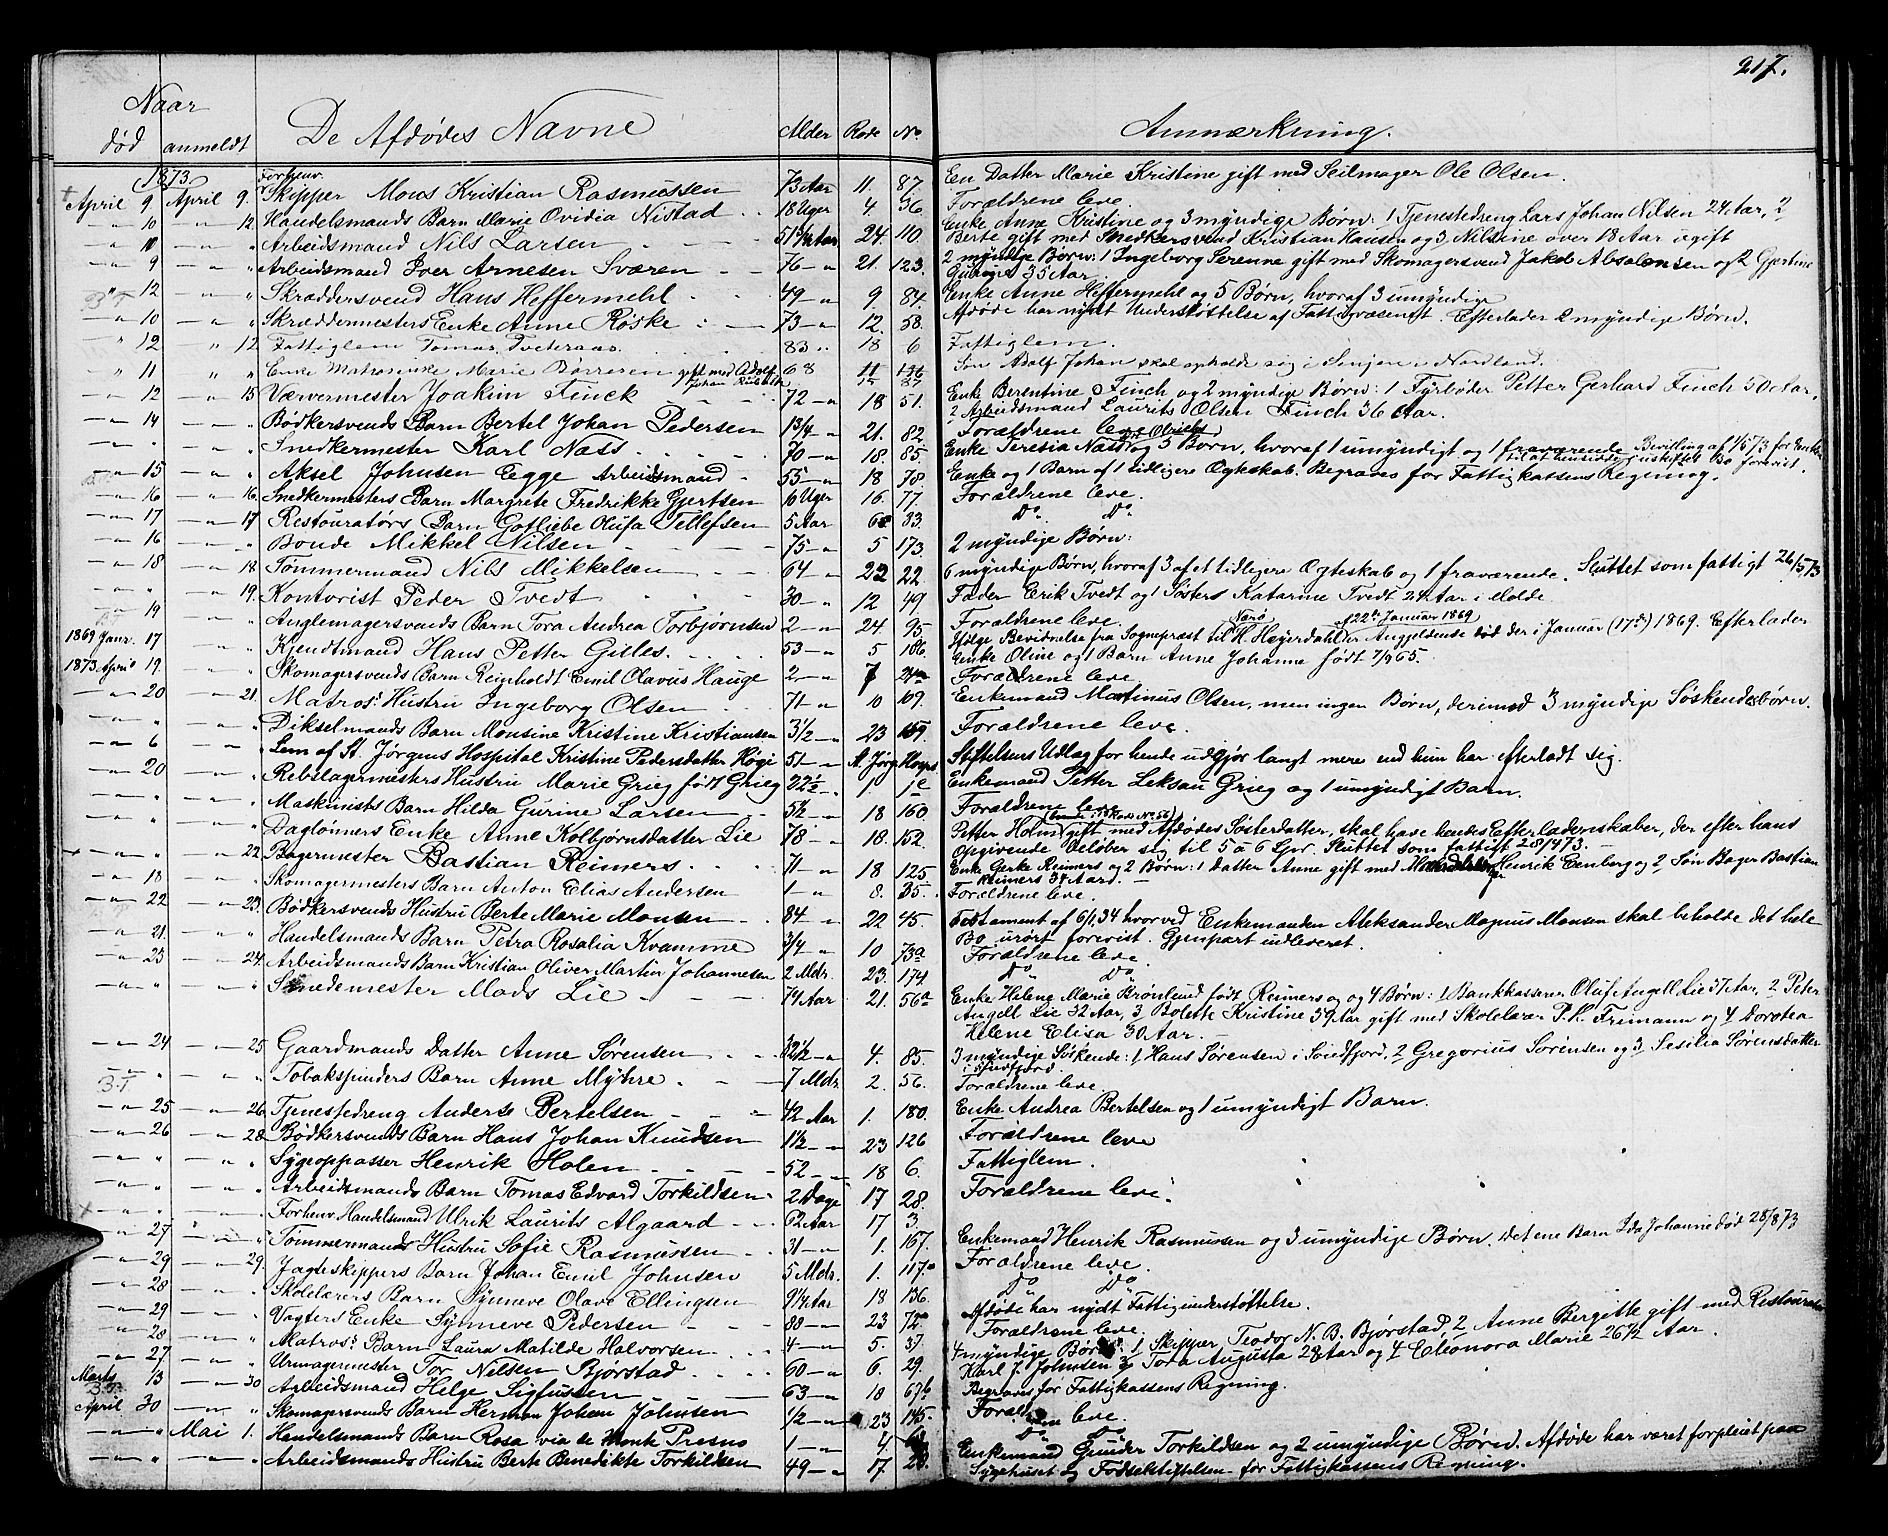 217.
Naar
død anmeldt De Afdødes Navne Alder Rode No Anmærkning.
1873. Forhenv.
April 9. April 9. Skipper Mons Kristian Rasmussen 73 Aar 11. 87. En Datter Marie Kristine gift med Seilmager Ole Olsen.
10 12. Handelsmands Barn Marie Ovidia Nistad 18 Uger 4. 36. Forældrene leve.
10 Arbeidsmand Nils Larsen 24. 110. Enke Anne Kristine og 3 myndige Børn: 1 Tjenestedreng Lars Johan Nilsen 24 Aar, 2
Berte gift med Snedkersvend Kristian Hansen og 3 Nilsine over 18 Aar ugift
9 Arbeidsmand Iver Arnesen Sværen 76 21. 123. 2 myndige Børn: 1 Ingeborg Serenne gift med Skomagersvend Jakob Absalonsen og 2 Gjertine
35 Aar.
12 Skræddersvend Hans Heffermehl 49 9 84. Enke Anne Heffermehl og 5 Børn, hvoraf 3 umyndige
10 Skræddermesters Enke Anne Røske 73 12. 58. Afdøde har nydt Understøttelse af Fattigvæsenet. Efterlader 2 myndige Børn.
12 12. Fattiglem Tomas Tveteraas 83 18 6 Fattiglem.
11 Enke Marie Børresen gift med Adolf 68 Søn Adolf Johan skal opholde sig i Senjen i Nordland.
12 15 Værvermester Joakim Finck 72 18 51. Enke Berentine Finch og 2 myndige Børn: 1 Fyrbøder Petter Gerhard Finch 50 Aar,
2 Arbeidsmand Laurits Olsen Finch 36 Aar.
14 Bødkersvends Barn Bertel Johan Pedersen 1 3/4 21. 82 Forældrene leve
Snedkermester Karl Næss 70 18. 85. Enke Teresia Næss og 5 Børn, hvoraf 1 umyndigt og 1 fraværende. Bevilling af 1/5 73 for Enken
til at hensidde i uskiftet Bo forevist.
15 Aksel Johnsen Egge Arbeidsmand 55 18 78. Enke og 1 Barn af 1 tidligere Ægteskab. Begraves for Fattigkassens Regning.
16 16. Snedkermesters Barn Margrete Fredrikke Gjertsen 10 Uger 16. 77. Forældrene leve.
17 17. Restauratørs Barn Gotliebe Olufa Tellefsen 5 Aar 83. Do Do
16 Bonde Mikkel Nilsen 75 5 173. 2 myndige Børn:
18 18. Tømmermand Nils Mikkelsen 64 22 22. 6 myndige Børn, hvoraf 3 af et tidligere Ægteskab og 1 fraværende. Sluttet som fattigt 26/5 73
19. Kontorist Peder Tvedt 30 12 49. Fader Erik Tvedt og 1 Søster Katarine Tvedt 24 Aar i Molde.
19 Anglemagersvends Barn Tora Andrea Torbjørnsen 2 24. 95. Forældrene leve.
1869 Janr. 17 Kjendtmand Hans Petter Gilles. 53 5 186 Ifølge Bevidnelse fra Sognepræst til H. Høyerdahl af 22de Januar 1869 Angjeldende død der i Januar (17de) 1869. Efterlader
Enke Oline og 1 Barn Anne Johanne født 7/9 65.
1873. April 19 Skomagersvends Barn Reinholdt Emil Olavus Hauge 2 7 Forældrene leve.
20 21. Matros: Hustru Ingeborg Olsen 71 10 109. Enkemand Martinus Olsen, men ingen Børn, derimod 3 myndige Søskendebørn.
Dikselmands Barn Monsine Kristine Kristiansen 3 1/2 23 Forældrene leve.
6 Lem af St. Jørgens Hospital Kristine Pedersdatter Høgi 51 St. Jørg. Hosps Stiftelsens Udlæg for hende udgjør langt mere end hun har efterladt sig.
20 Rebslagermesters Hustru Marie Grieg født Grieg 22 1/2 1. 1e Enkemand Petter Leksau Grieg og 1 umyndigt Barn.
Maskinists Barn Hilda Gurine Larsen 18 160. Forældrene leve
Dagtønners Enke Anne Kolbjørnsdatter Lie 78 18. 152. Petter Holm gift med Afdødes Søsterdatter, skal have hendes Efterladenskaber, der efter hans
Opgivende beløber sig til 5 à 6 Spr. Sluttet som fattigt 28/4 73.
22. Bagermester Bastian Reimers. 71 18 125 Enke Gerke Reimers og 2 Børn: 1 Datter Anne gift med Henrik Eenberg og 2 Søn Bager Bastian
Reimers 34 Aar.
18 Skomagermesters Barn Anton Elias Andersen 1 8. 35. Forældrene leve.
22 23. Bødkersvends Hustru Berte Marie Monsen 84 22 45. Testament af 6/1 34 hvorved Enkemanden Aleksander Magnus Monsen skal beholde det hele
Bo urørt forevist. Gjenpart udleveret.
21. Handelsmands Barn Petra Rosalia Kvamme 3/4 10 73a Forældrene leve
23 24. Arbeidsmands Barn Kristian Oliver Martin Johannesen 2 Mdr. 23. 174 Do Do
Smedemester Mads Lie 74 Aar 21. 56a Enke Helene Marie Brønlund født Reimers og 4 Børn: 1 Bankkasserer Oluf Angell Lie 37 Aar, 2 Peter
Angell Lie 32 Aar, 3 Bolette Kristine 39 Aar gift med Skolelærer P. K. Frimann og 4 Dorotea
Helene Elisa 30 Aar.
24 25. Gaardmands Datter Anne Sørensen 32 1/2 4. 85. 3 myndige Søskende: 1 Hans Sørensen i Søndfjord, 2 Gregorius Sørensen og 3 Sesilia Sørensdatter
i Søndfjord.
Tobakspinders Barn Anne Myhre 7 Mdr. 2. 56. Forældrene leve.
25 26. Tjenestedreng Anderse Bertelsen 42 Aar 1. 180. Enke Andrea Bertelsen og 1 umyndigt Barn.
26 28. Bødkersvends Barn Hans Johan Knudsen 1 1/2 23 126 Forældrene leve
Sygeopasser Henrik Holen 52 18 6. Fattiglem.
Arbeidsmands Barn Tomas Edvard Torkildsen 2 Dage 17 28. Forældrene leve.
Forhenv. Handelsmand Ulrik Laurits Algaard 62 Aar 17 3.
27 Tømmermands Hustru Sofie Rasmussen 31 1. 167. Enkemand Henrik Rasmussen og 3 umyndige Børn, det ene Barn Ida Johanne død 28/8 73
29 29. Jagtskippers Barn Johan Emil Johnsen 5 Mdr. 1. 117. Forældrene leve.
28 Skolelærers Barn Synneve Olave Ellingsen 9 1/4 Aar 18 136. Do Do
29 Vægters Enke Synneve Pedersen 88 23 72 Afdøde har nydt Fattigunderstøttelse.
28. Matros: Barn Laura Matilde Halvorsen 4 5. 37. Forældrene leve.
27 Urmagermester Tor Nilsen Bjørstad 60 6. 29. 4 myndige Børn: 1 Skipper Teodor N. B. Bjørstad, 2 Anne Bergitte gift med Restauratør
Karl J. Johnsen 3 Tora Augusta 28 Aar og 4 Eleonora Marie 26 1/2 Aar.
Marts 13 30 Arbeidsmand Helge Sigfussen 63 18 67b Begraves for Fattigkassens Regning.
April 30 Skomagersvends Barn Herman Johan Johnsen 1/2 23 145. Forældrene leve.
Mai 1. Handelsmands Barn Rosa via de Monk Presno 1 4. Do Do
Arbeidsmands Hustru Berte Benedikte Torkildsen 49 17 28. Enkemand Gunder Torkildsen og 2 umyndige Børn. Afdøde har været forpleiet paa
Sygehuset og Fødselsstiftelsen for Fattigkassens Regning.